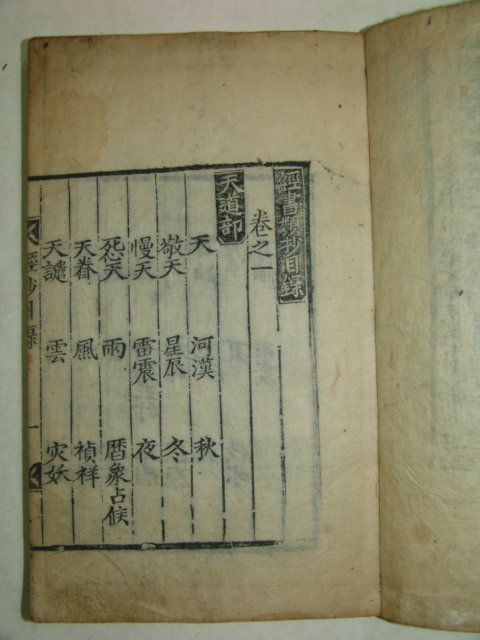 經書類抄目錄
卷之一
天道部
天 河漢 秋
敬天 星辰 冬
慢天 雷震 夜
怨天 雨 暦象占候
天眷 風 禎祥
天譴 雲 灾妖
經抄目錄 一